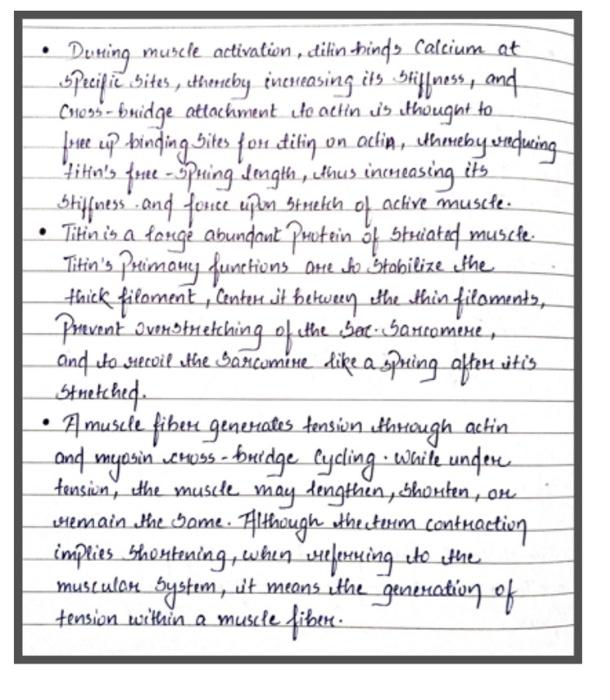 • During muscle activation, titin binds Calcium at
Specific Sites, thereby increasing its Stiffness, and
Cross-bridge attachment to actin is thought to
free up binding Sites for titin on actin, thereby reducing
titin's free-Spring length, thus increasing its
Stiffness and force upon Stretch of active muscle.
• Titin is a large abundant Protein of Striated muscle.
Titin's Primary functions are to Stabilize the
thick filament, Center it between the thin filaments,
Prevent overstretching of the Sarcomere,
and to recoil the Sarcomere like a spring after it is
Stretched.
• A muscle fiber generates tension through actin
and myosin cross-bridge Cycling. While under
tension, the muscle may lengthen, Shorten, or
remain the Same. Although the term contraction
implies Shortening, when referring to the
muscular System, it means the generation of
tension within a muscle fiber.